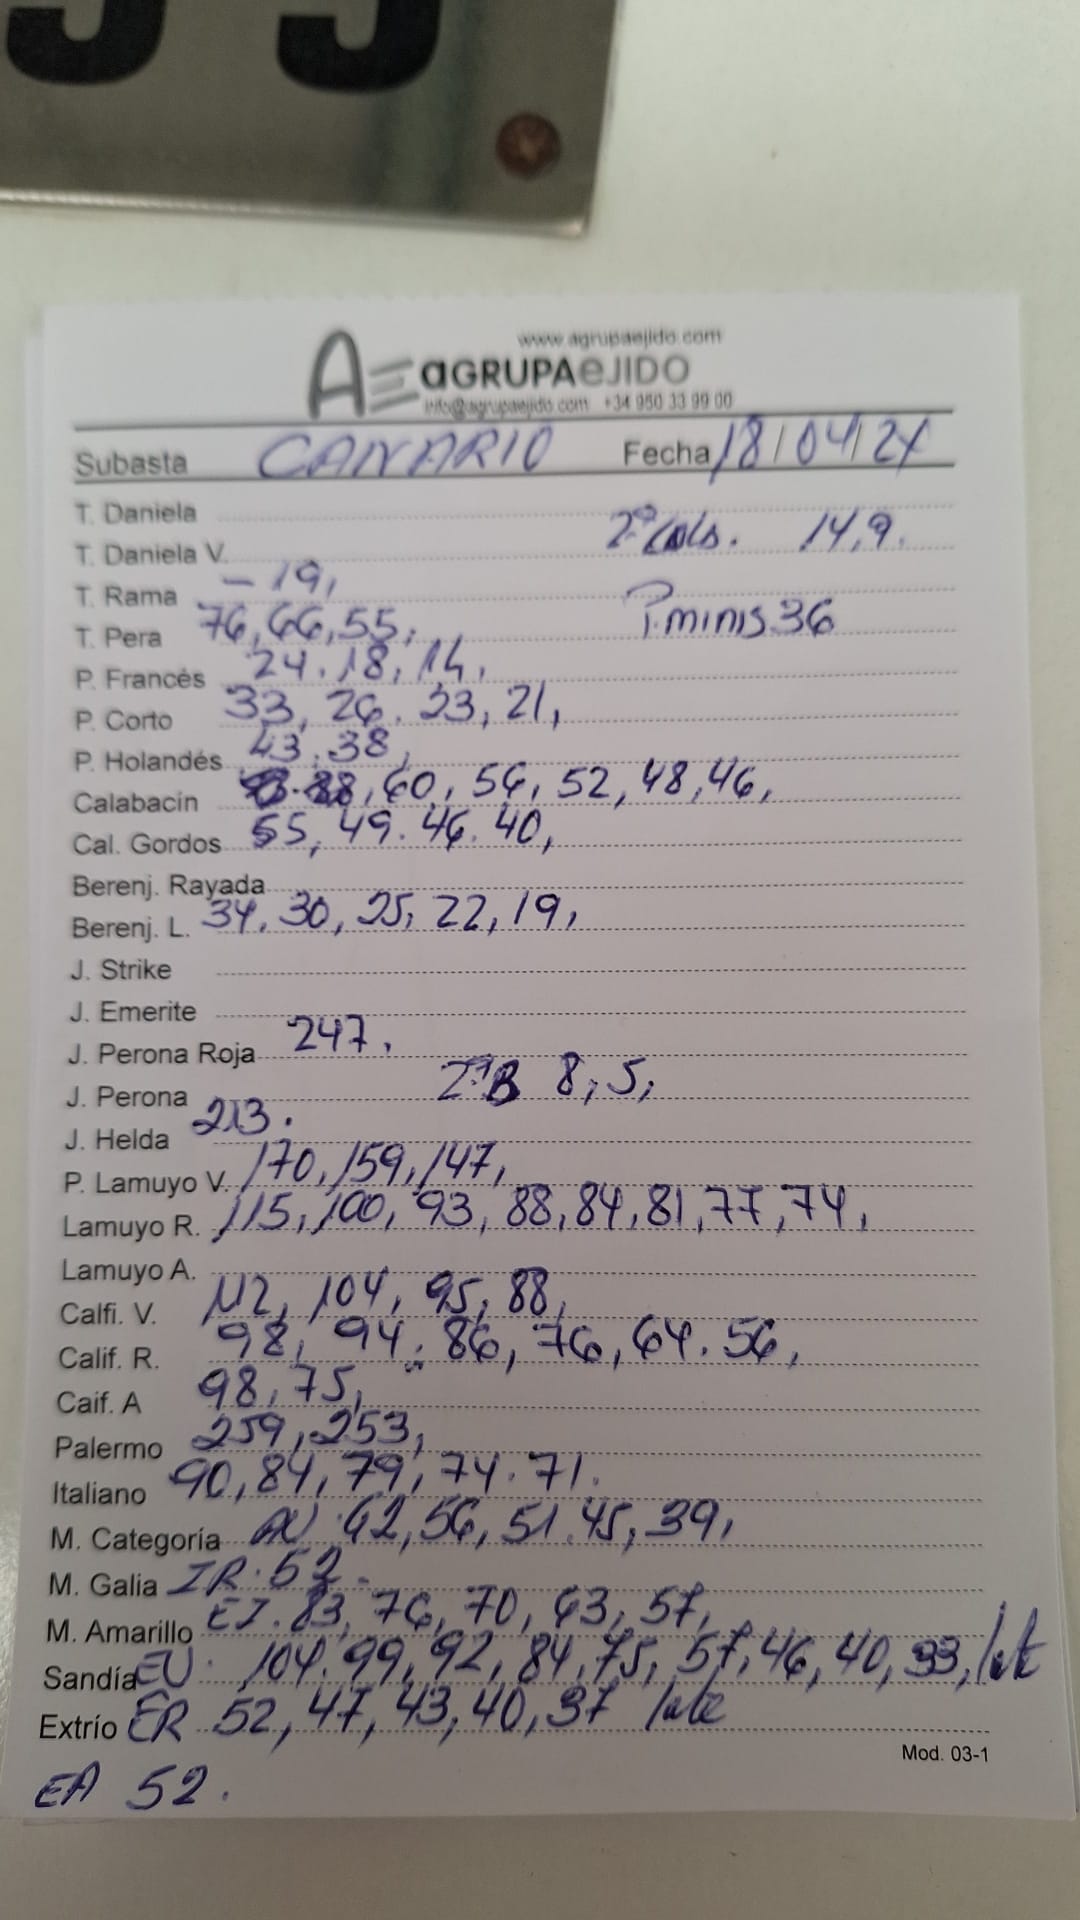 www.agrupaejido.com
AGRUPAEJIDO
info@agrupaejido.com +34 950 33 99 00
Subasta CANARIO Fecha 18/04/24
T. Daniela
T. Daniela V. 2ª Cals. 14,9.
T. Rama – 19,
T. Pera 76,66,55. P. minis 36
P. Francés 24.18,14,
P. Corto 33,26.23,21,
P. Holandés 43.38,
Calabacín 60,56,52,48,46,
Cal. Gordos 55,49.46.40,
Berenj. Rayada
Berenj. L. 34,30,25,22,19,
J. Strike
J. Emerite
J. Perona Roja 247.
J. Perona 2ªB 8,5,
J. Helda 213.
P. Lamuyo V. 170,159,147,
Lamuyo R. 115,100,93,88,84,81,77,74,
Lamuyo A.
Calfi. V. 112,104,95,88,
Calif. R. 98,94.86,76,64.56,
Caif. A 98,75,
Palermo 259,253,
Italiano 90,84,79,74.71.
M. Categoría 62,56,51.45,39,
M. Galia IR.52.
M. Amarillo EJ.83,76,70,63,57,
Sandía EU. 104.99,92,84,75,57,46,40,33,
Extrío ER 52,47,43,40,37
Mod. 03-1
EA 52.